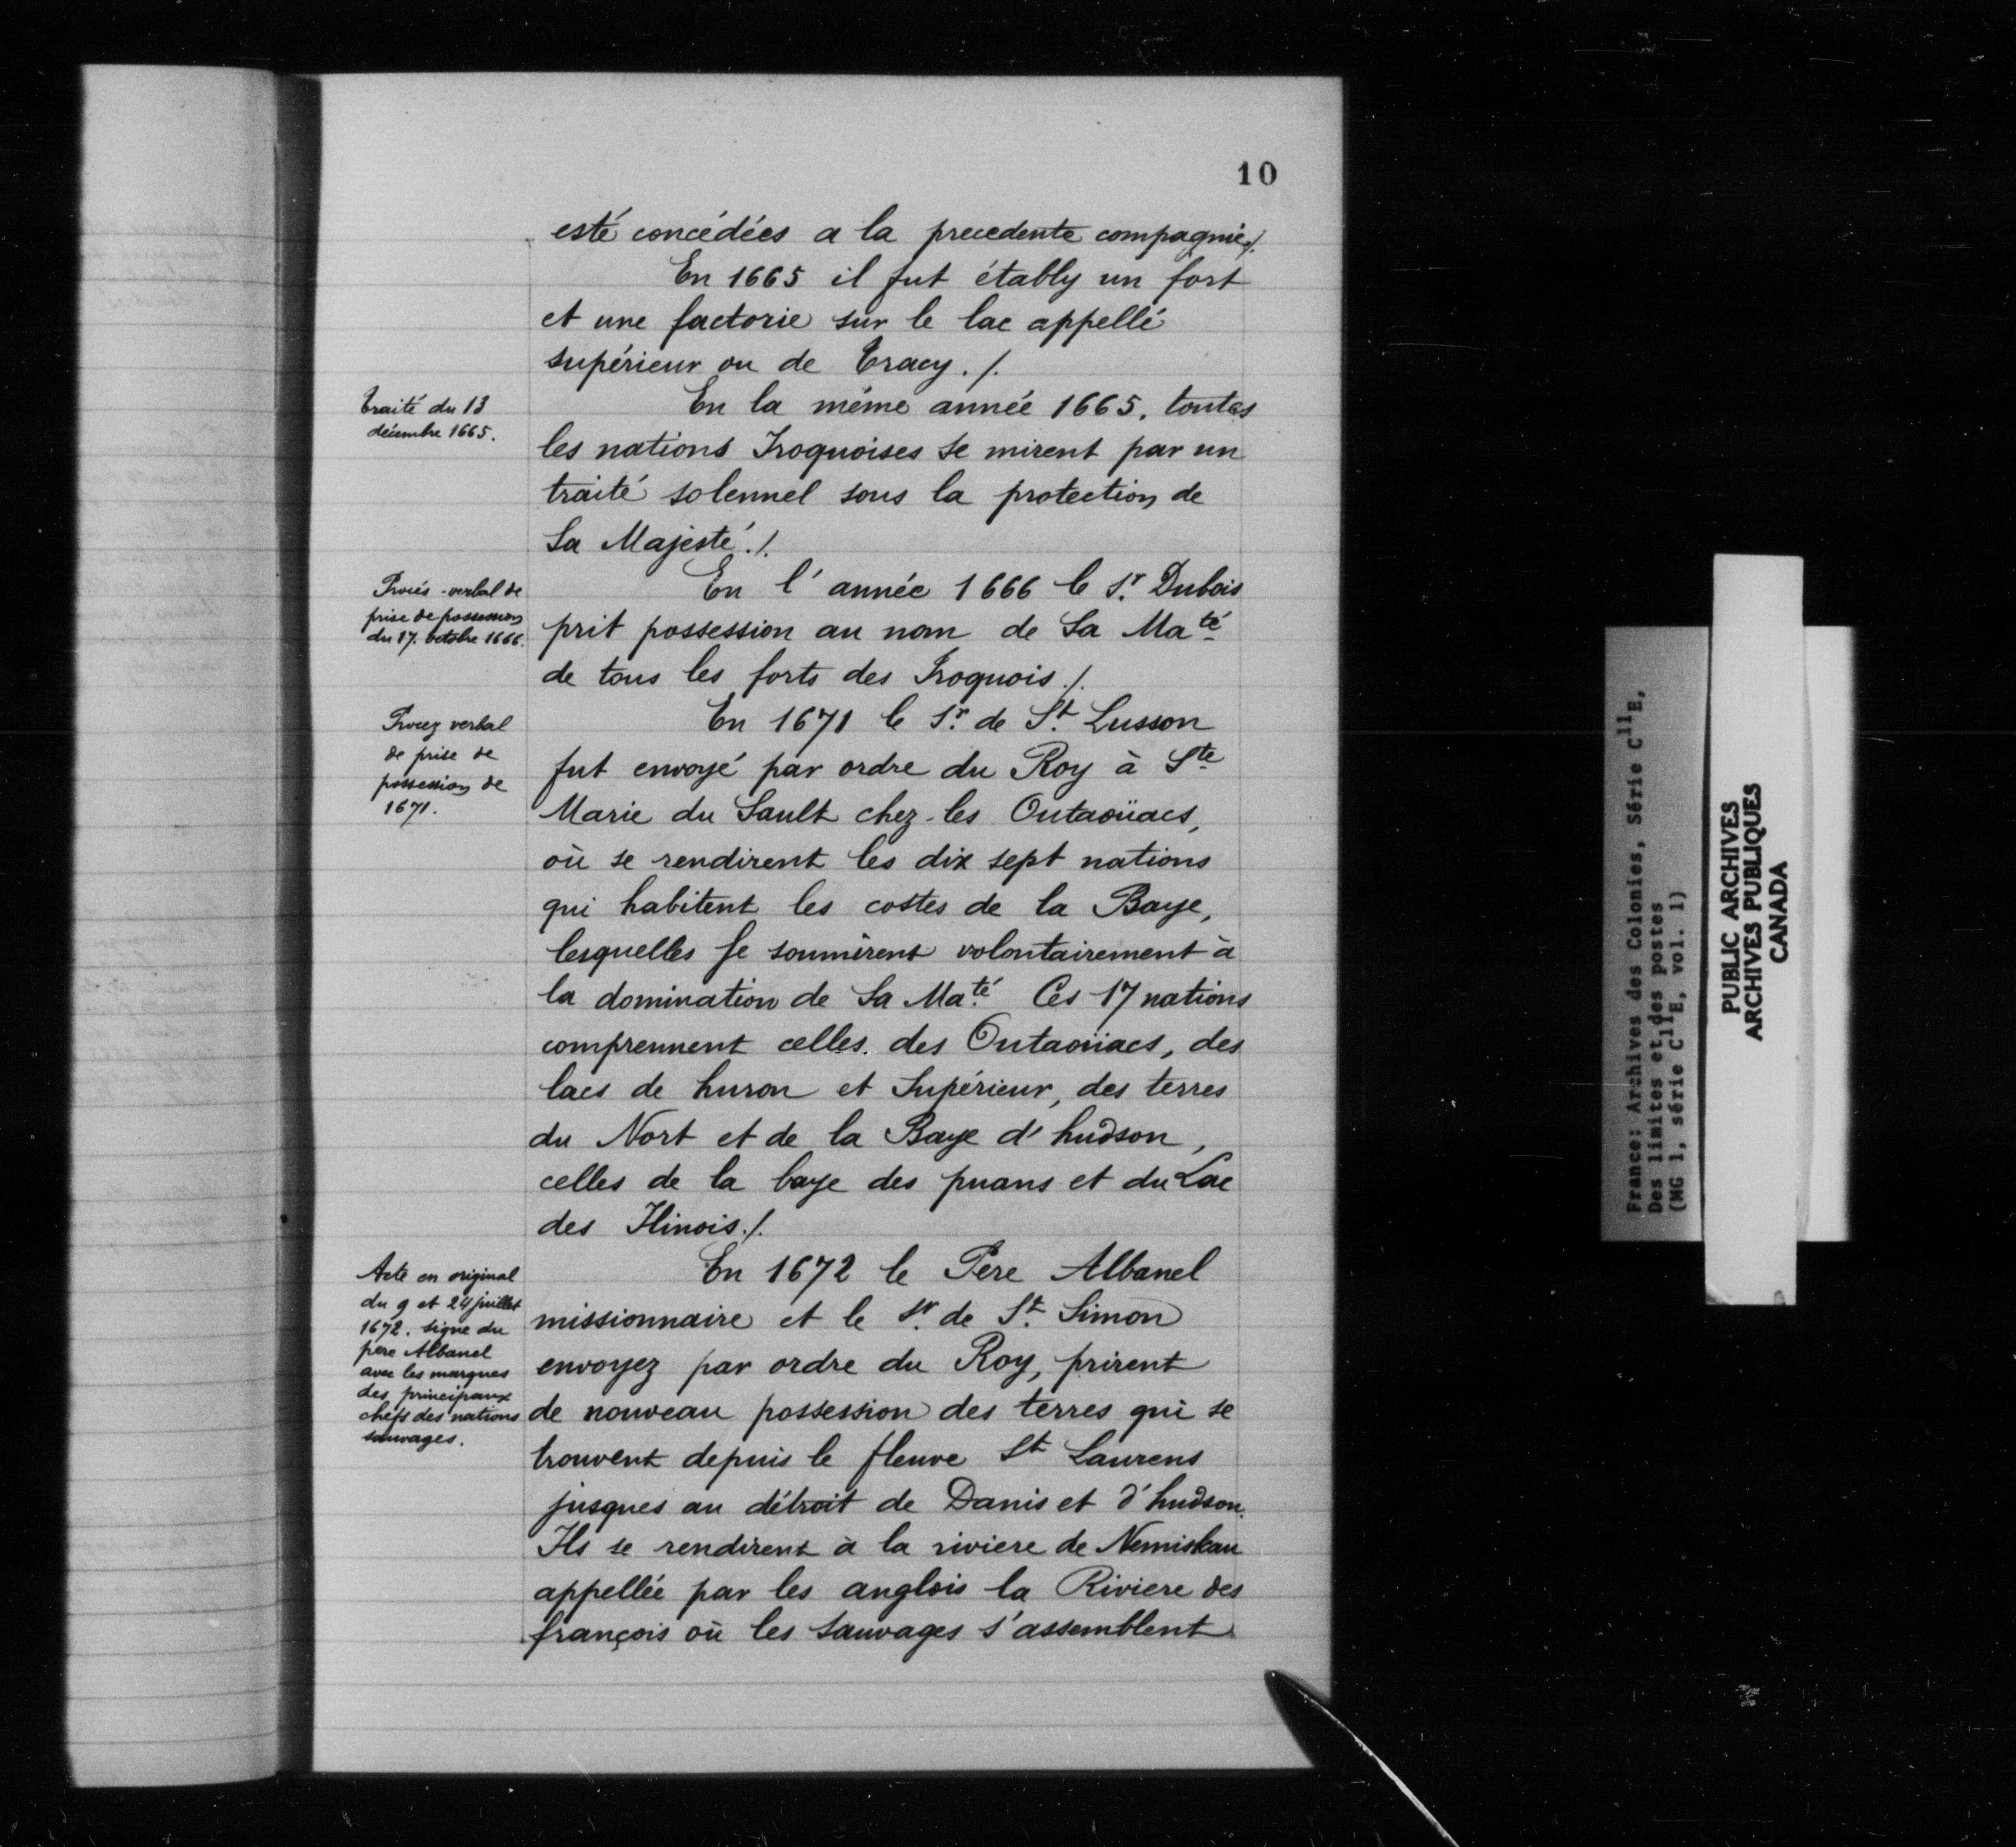 10
esté concédées a la precedente compagnie./.
En 1665 il fut étably un fort
et une factorie sur le lac appellé
supérieur ou de Tracy. /.
Traité du 13
décembre 1665.
En la même année 1665, toutes
les nations Iroquoises se mirent par un
traité solennel sous la protection de
Sa Majesté./.
Procés-verbal de
prise de possession
du 17. octobre 1666.
En l'année 1666 le Sr. Dubois
prit possession au nom de Sa Maté
de tous les forts des Iroquois./.
Procez verbal
de prise de
possession de
1671.
En 1671 le Sr. de St. Lusson
fut envoyé par ordre du Roy à Ste
Marie du Sault chez-les Outaoüacs,
où se rendirent les dix sept nations
qui habitent les costes de la Baye,
lesquelles se soumirent volontairement à
la domination de Sa Maté. Ces 17 nations
comprennent celles des Outaoüacs, des
lacs de huron et Supérieur, des terres
du Nort et de la Baye d'hudson,
celles de la baye des puans et du Lac
des Ilinois./.
Acte en original
du 9 et 24 juillet
1672. signe du
pere Albanel
avec les marques
des principaux
chefs des nations
sauvages.
En 1672 le Père Albanel
missionnaire et le Sr. de St. Simon
envoyez par ordre du Roy, prirent
de nouveau possession des terres qui se
trouvent depuis le fleuve St Laurens
jusques au détroit de Danis et d'hudson.
Ils se rendirent à la riviere de Nemiskau
appellée par les anglois la Riviere des
françois où les sauvages s'assemblent
France: Archives des Colonies, Série C11E,
Des limites et des postes
(MG 1, série C11E, vol. 1)
PUBLIC ARCHIVES
ARCHIVES PUBLIQUES
CANADA